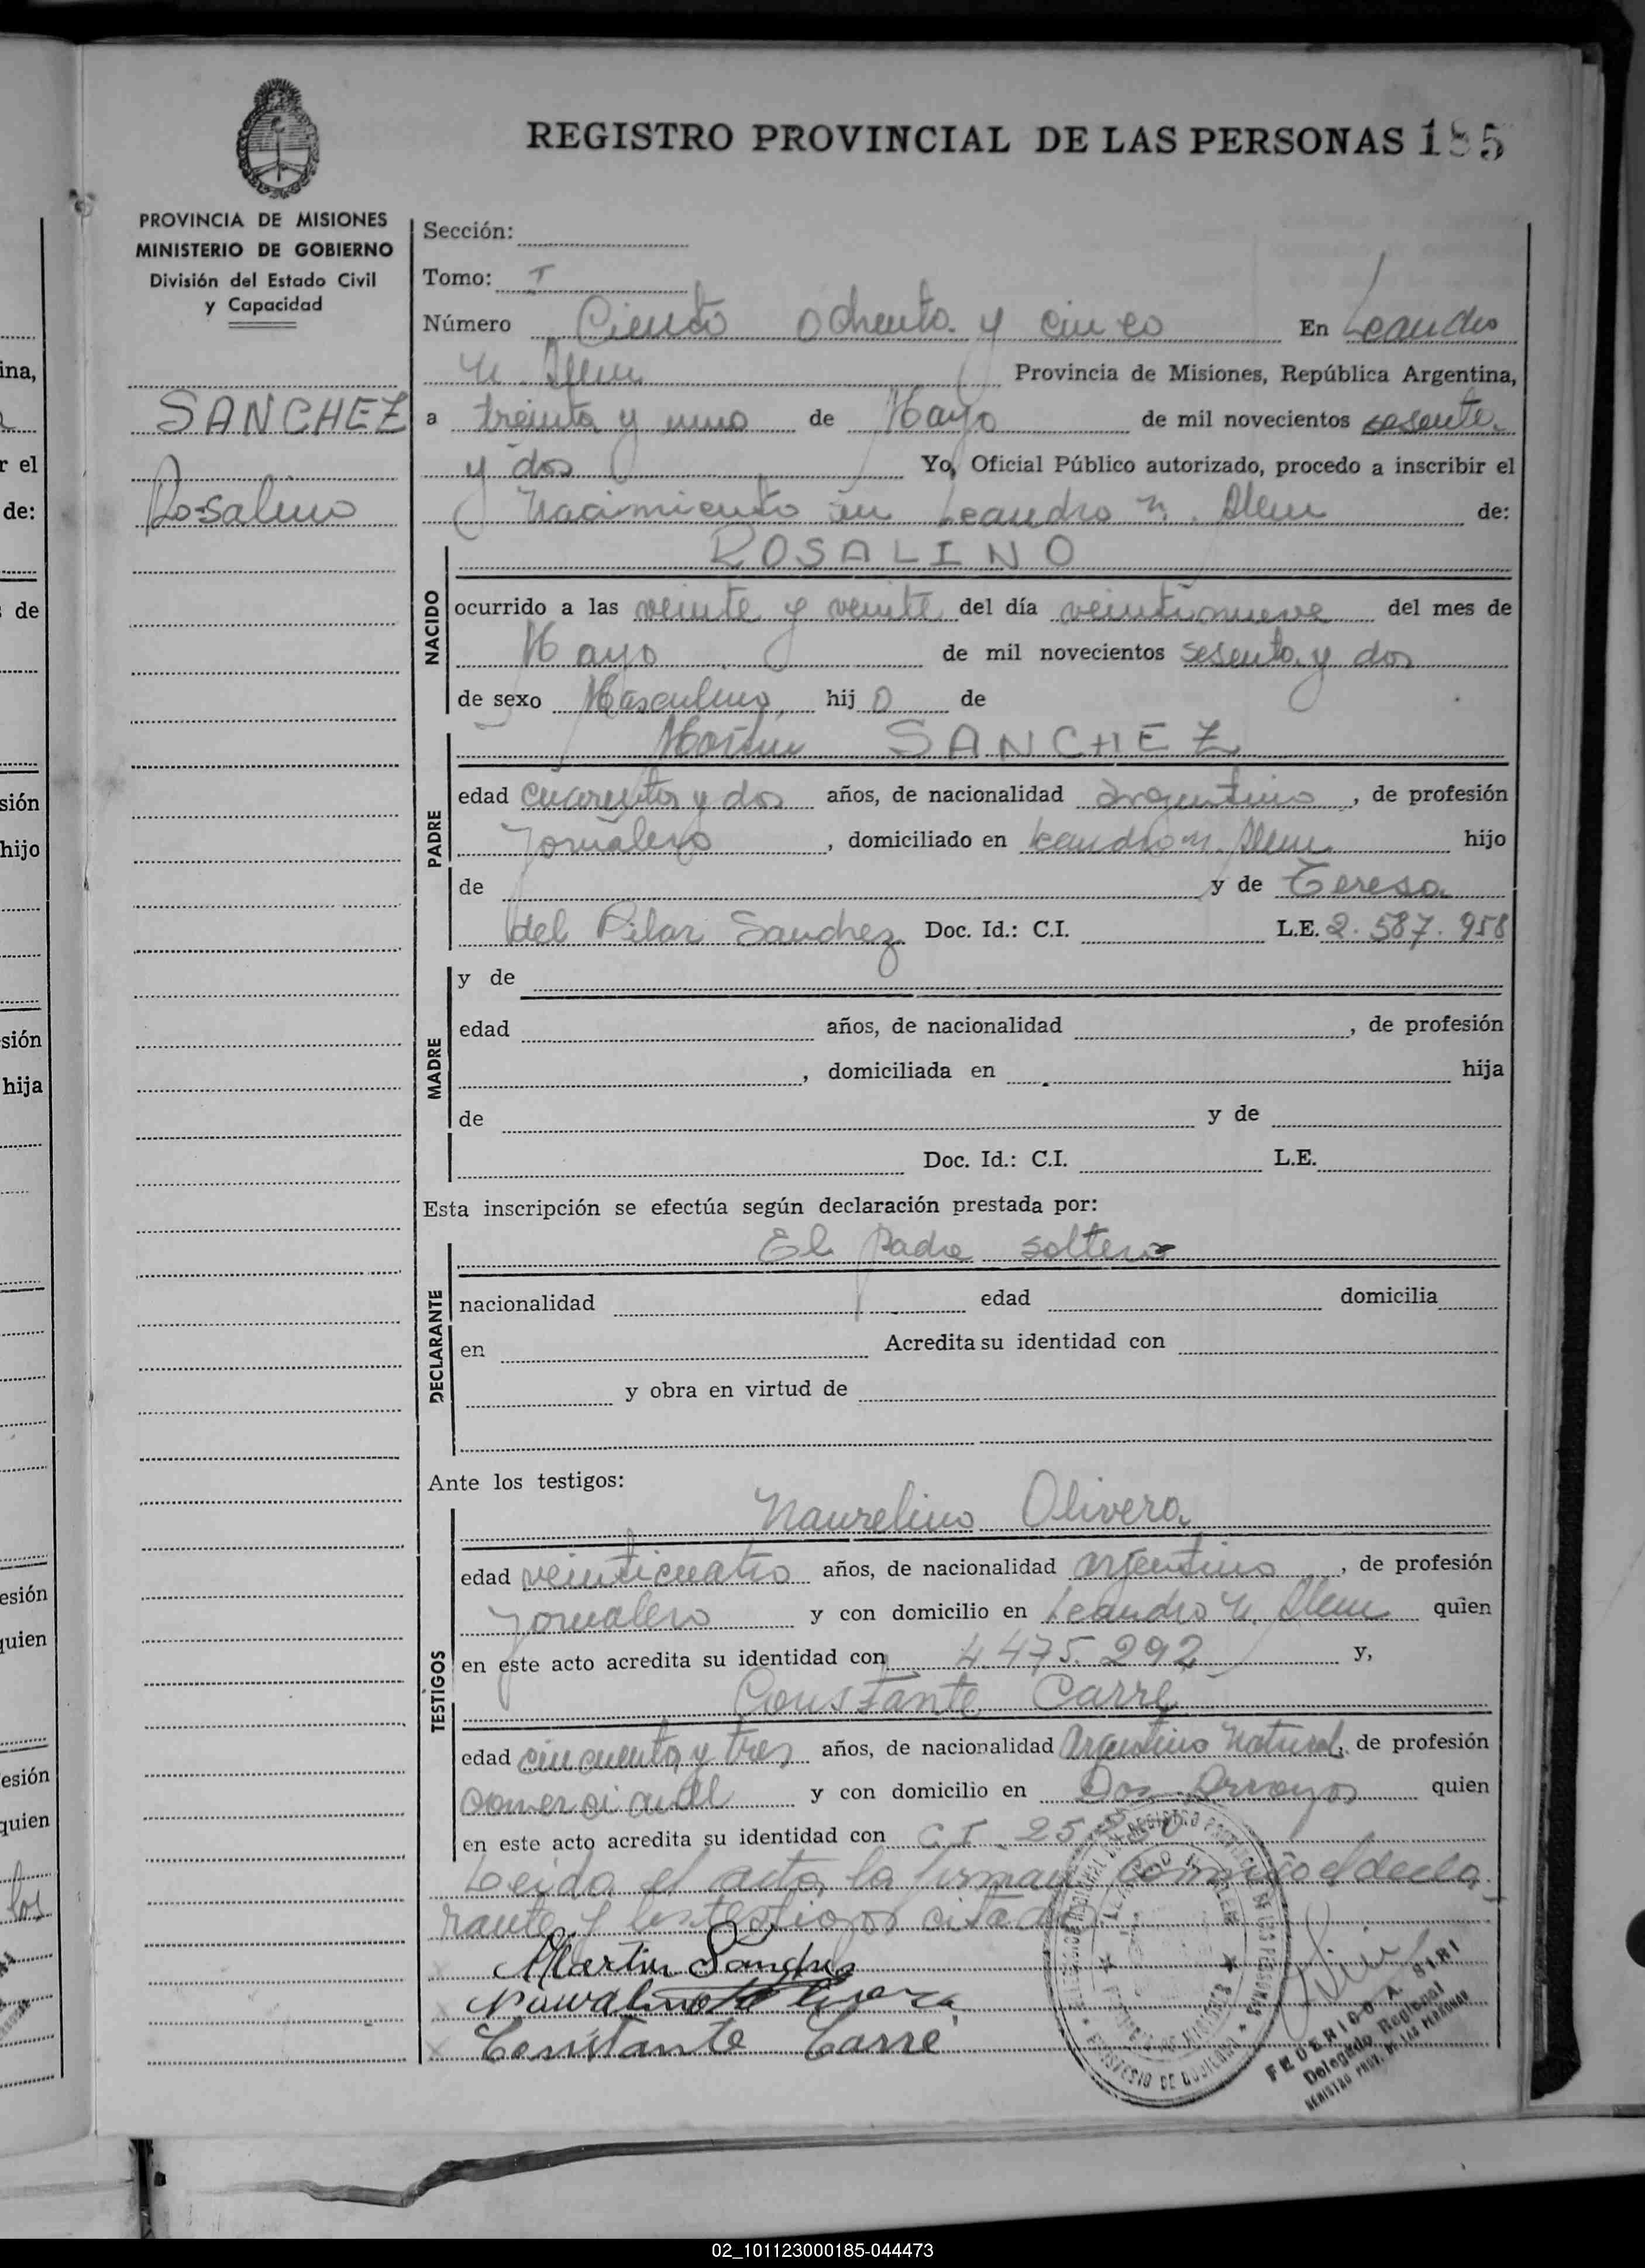 REGISTRO PROVINCIAL DE LAS PERSONAS 185
PROVINCIA DE MISIONES
MINISTERIO DE GOBIERNO
División del Estado Civil
y Capacidad
SANCHEZ
Rosalino
Sección:
Tomo: I
Número Ciento ochenta y cinco En Leandro
N. Alem Provincia de Misiones, República Argentina,
a treinta y uno de Mayo de mil novecientos sesenta
y dos Yo, Oficial Público autorizado, procedo a inscribir el
Nacimiento en Leandro N. Alem de:
NACIDO
ROSALINO
ocurrido a las veinte y veinte del día veintinueve del mes de
Mayo de mil novecientos sesenta y dos
de sexo Masculino, hij o de
PADRE
Martin SANCHEZ
edad cuarenta y dos años, de nacionalidad argentino, de profesión
Jornalero, domiciliado en Leandro N. Alem hijo
de y de Teresa
del Pilar Sanchez Doc. Id.: C.I. L.E. 2.587.958
MADRE
y de
edad años, de nacionalidad , de profesión
, domiciliada en hija
de y de
Doc. Id.: C.I. L.E.
Esta inscripción se efectúa según declaración prestada por:
DECLARANTE
El padre soltero
nacionalidad edad domicilia
en Acredita su identidad con
y obra en virtud de
Ante los testigos:
TESTIGOS
Naurelino Olivera
edad veinticuatro años, de nacionalidad argentino, de profesión
Jornalero y con domicilio en Leandro N. Alem quien
en este acto acredita su identidad con 4.475.292 y,
Constante Carré
edad cincuenta y tres años, de nacionalidad Argentino Natural, de profesión
comerciante y con domicilio en Dos Arroyos quien
en este acto acredita su identidad con C.I. 25
Leida el acta la firman conmigo el decla
rante y los testigos citados
Martin Sanches
Constante Carré
FEDERICO A. SIRI
Delegado Regional
REGISTRO PROV. DE LAS PERSONAS
ina,
r el
de:
de
sión
hijo
sión
hija
esión
quien
esión
quien
los
02_101123000185-044473